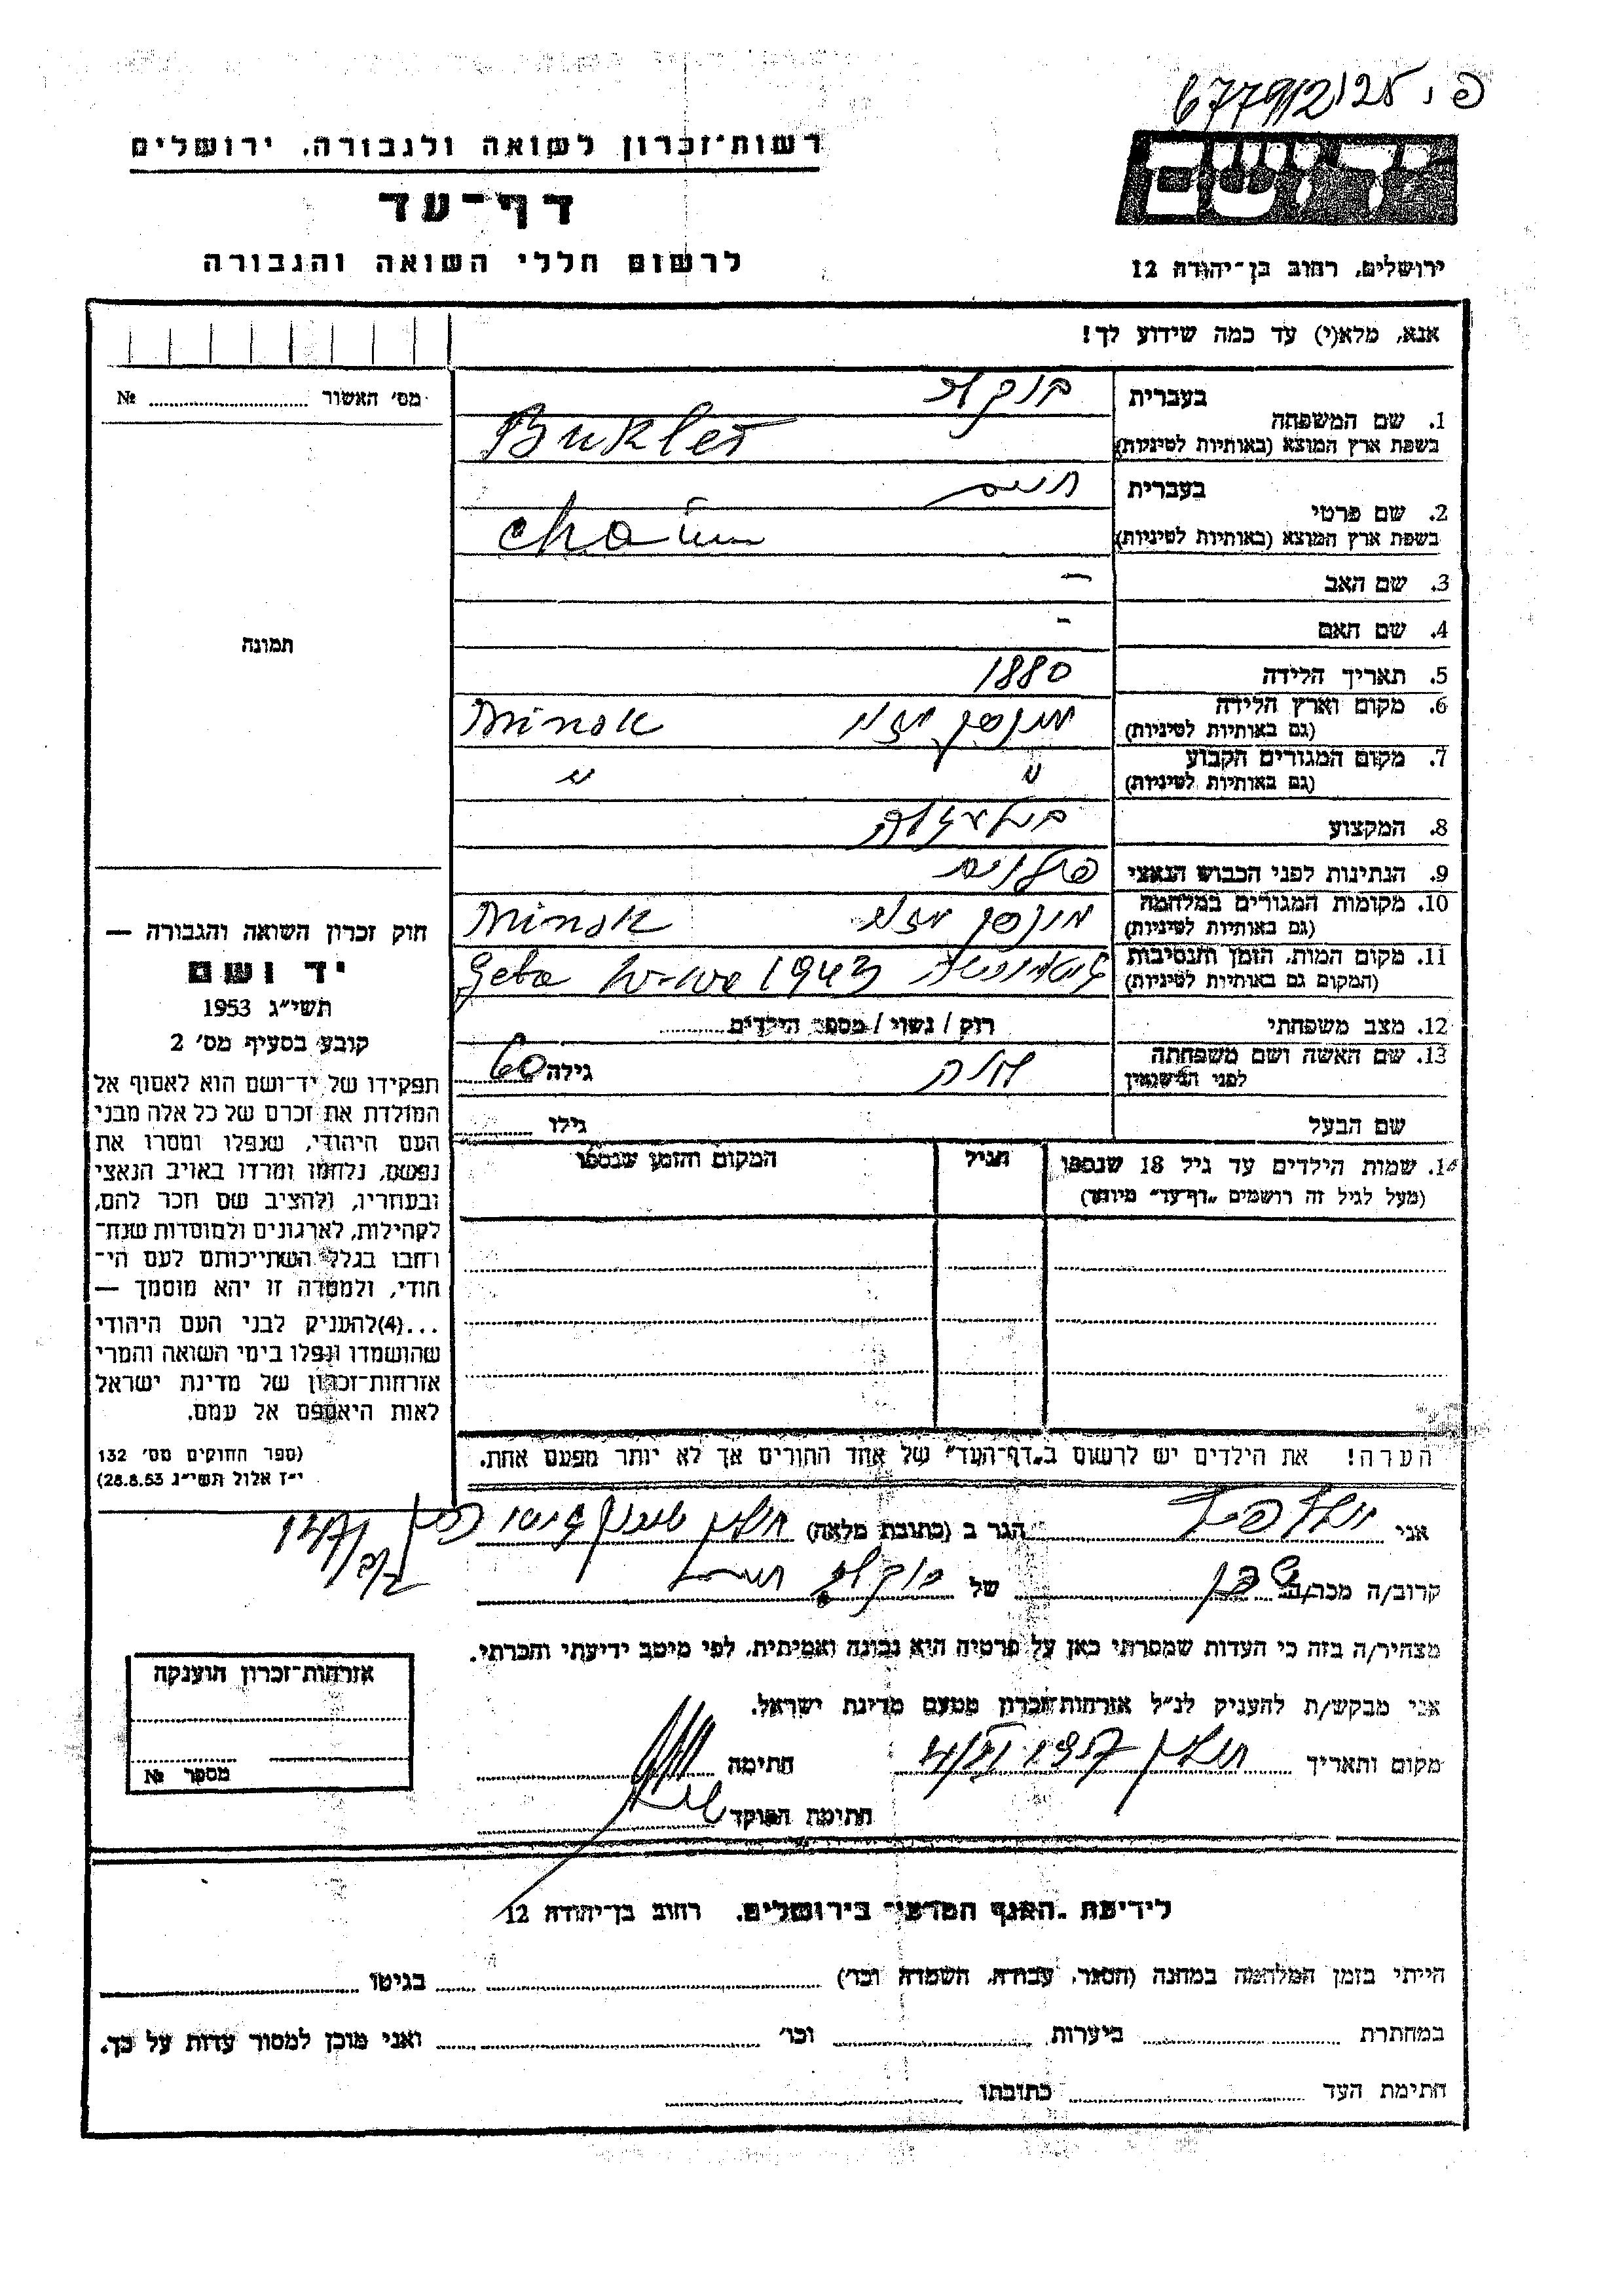 רשות־זכרון לשואה ולגבורה, ירושלים
דף־עד
לרשום חללי השואה והגבורה
יד ושם
ירושלים, רחוב בן־יהודה 12
אנא, מלא(י) עד כמה שידוע לך!
מס׳ האשור № 
1. שם המשפחה
בעברית בוקלר
בשפת ארץ המוצא (באותיות לטיניות) Bukler
2. שם פרטי
בעברית חיים
בשפת ארץ המוצא (באותיות לטיניות) Chaim
3. שם האב –
4. שם האם –
5. תאריך הלידה 1880
6. מקום וארץ הלידה
(גם באותיות לטיניות) מינסק מזוב Minsk
7. מקום המגורים הקבוע
(גם באותיות לטיניות) " "
8. המקצוע
9. הנתינות לפני הכבוש הנאצי פולנית
10. מקומות המגורים במלחמה
(גם באותיות לטיניות) מינסק מזוב Minsk
11. מקום המות, הזמן והנסיבות
(המקום גם באותיות לטיניות) 1943
12. מצב משפחתי רוק / נשוי / מספר הילדים
13. שם האשה ושם משפחתה
לפני הנישואין גילה 60
שם הבעל גילו
14. שמות הילדים עד גיל 18 שנספו
(מעל לגיל זה רושמים „דף־עד” מיוחד)
הגיל
המקום והזמן שנספו
הערה! את הילדים יש לרשום ב„דף־העד” של אחד ההורים אך לא יותר מפעם אחת.
תמונה
חוק זכרון השואה והגבורה —
יד ושם
תשי״ג 1953
קובע בסעיף מס׳ 2
תפקידו של יד־ושם הוא לאסוף אל
המולדת את זכרם של כל אלה מבני
העם היהודי, שנפלו ומסרו את
נפשם, נלחמו ומרדו באויב הנאצי
ובעוזריו, ולהציב שם וזכר להם,
לקהילות, לארגונים ולמוסדות שנח־
רחבו בגלל השתייכותם לעם הי־
הודי, ולמטרה זו יהא מוסמך —
...(4)להעניק לבני העם היהודי
שהושמדו ונפלו בימי השואה והמרי
אזרחות־זכרון של מדינת ישראל
לאות היאספם אל עמם.
(ספר החוקים מס׳ 132
י״ז אלול תשי״ג 28.8.53)
אני הגר ב (כתובת מלאה) חולון
קרוב/ה מכר/ה שכן של בוקלר חיים
מצהיר/ה בזה כי העדות שמסרתי כאן על פרטיה היא נכונה ואמיתית, לפי מיטב ידיעתי והכרתי.
אני מבקש/ת להעניק לנ״ל אזרחות־זכרון מטעם מדינת ישראל.
מקום ותאריך חולון 1957 חתימה
חתימת הפוקד
אזרחות־זכרון הוענקה
מספר №
לידיעת „האגף המדעי” בירושלים, רחוב בן־יהודה 12
הייתי בזמן המלחמה במחנה (הסגר, עבודה, השמדה וכו׳) בגיטו
במחתרת ביערות וכו׳ ואני מוכן למסור עדות על כך.
חתימת העד כתובתו